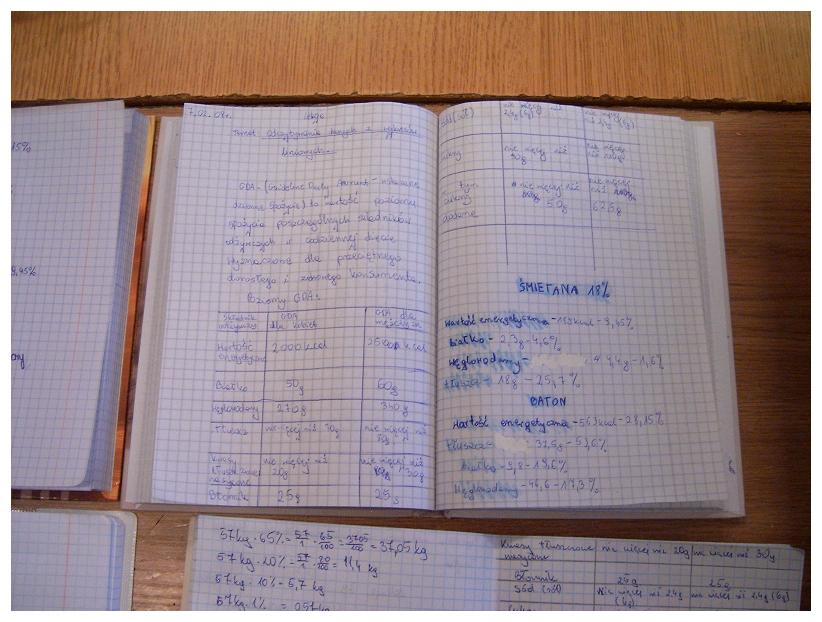 15%
9,45%
7.02.09r.
Lekcja
Temat: Odczytywanie danych z
GDA - (Guideline Daily Amount - wskazane
dzienne spożycie) to wartość poziomu
spożycia poszczególnych składników
odżywczych w codziennej diecie
wyznaczone dla przeciętnego
dorosłego i zdrowego konsumenta.
Poziomy GDA:
Składnik odżywczy GDA dla kobiet GDA dla mężczyzn
Wartość energetyczna 2000 kcal 2500 kcal
Białko 50g 60g
Węglowodany 270g 340g
Tłuszcz nie więcej niż 70g nie więcej niż
Kwasy tłuszczowe nasycone nie więcej niż 20g nie więcej niż 30g
Błonnik 25g 25g
sód (sól) nie więcej niż 2,4g (6g) nie więcej niż 2,4g (6g)
cukry nie więcej niż 90g nie więcej niż
w tym cukry dodane nie więcej niż 50g nie więcej niż 62,5g
ŚMIETANA 18%
Wartość energetyczna - kcal - 9,45%
Białko - 2,3g - 4,6%
Węglowodany - 4,4g - 1,6%
Tłuszcz - 18g - 25,7%
BATON
Wartość energetyczna - 563kcal - 28,15%
Tłuszcz - 37,5g - 53,6%
Białko - 9,8 - 19,6%
Węglowodany - 46,6 - 17,3%
57kg · 65% = 57/1 · 65/100 = 3705/100 = 37,05 kg
57kg · 20% = 57/1 · 20/100 = 11,4 kg
57kg · 10% = 5,7 kg
57kg · 1% = 0,57kg
Kwasy tłuszczowe nie więcej niż 20g nie więcej niż 30g
Błonnik 25g 25g
Sód (sól) Nie więcej niż 2,4g (6g) nie więcej niż 2,4g (6g)